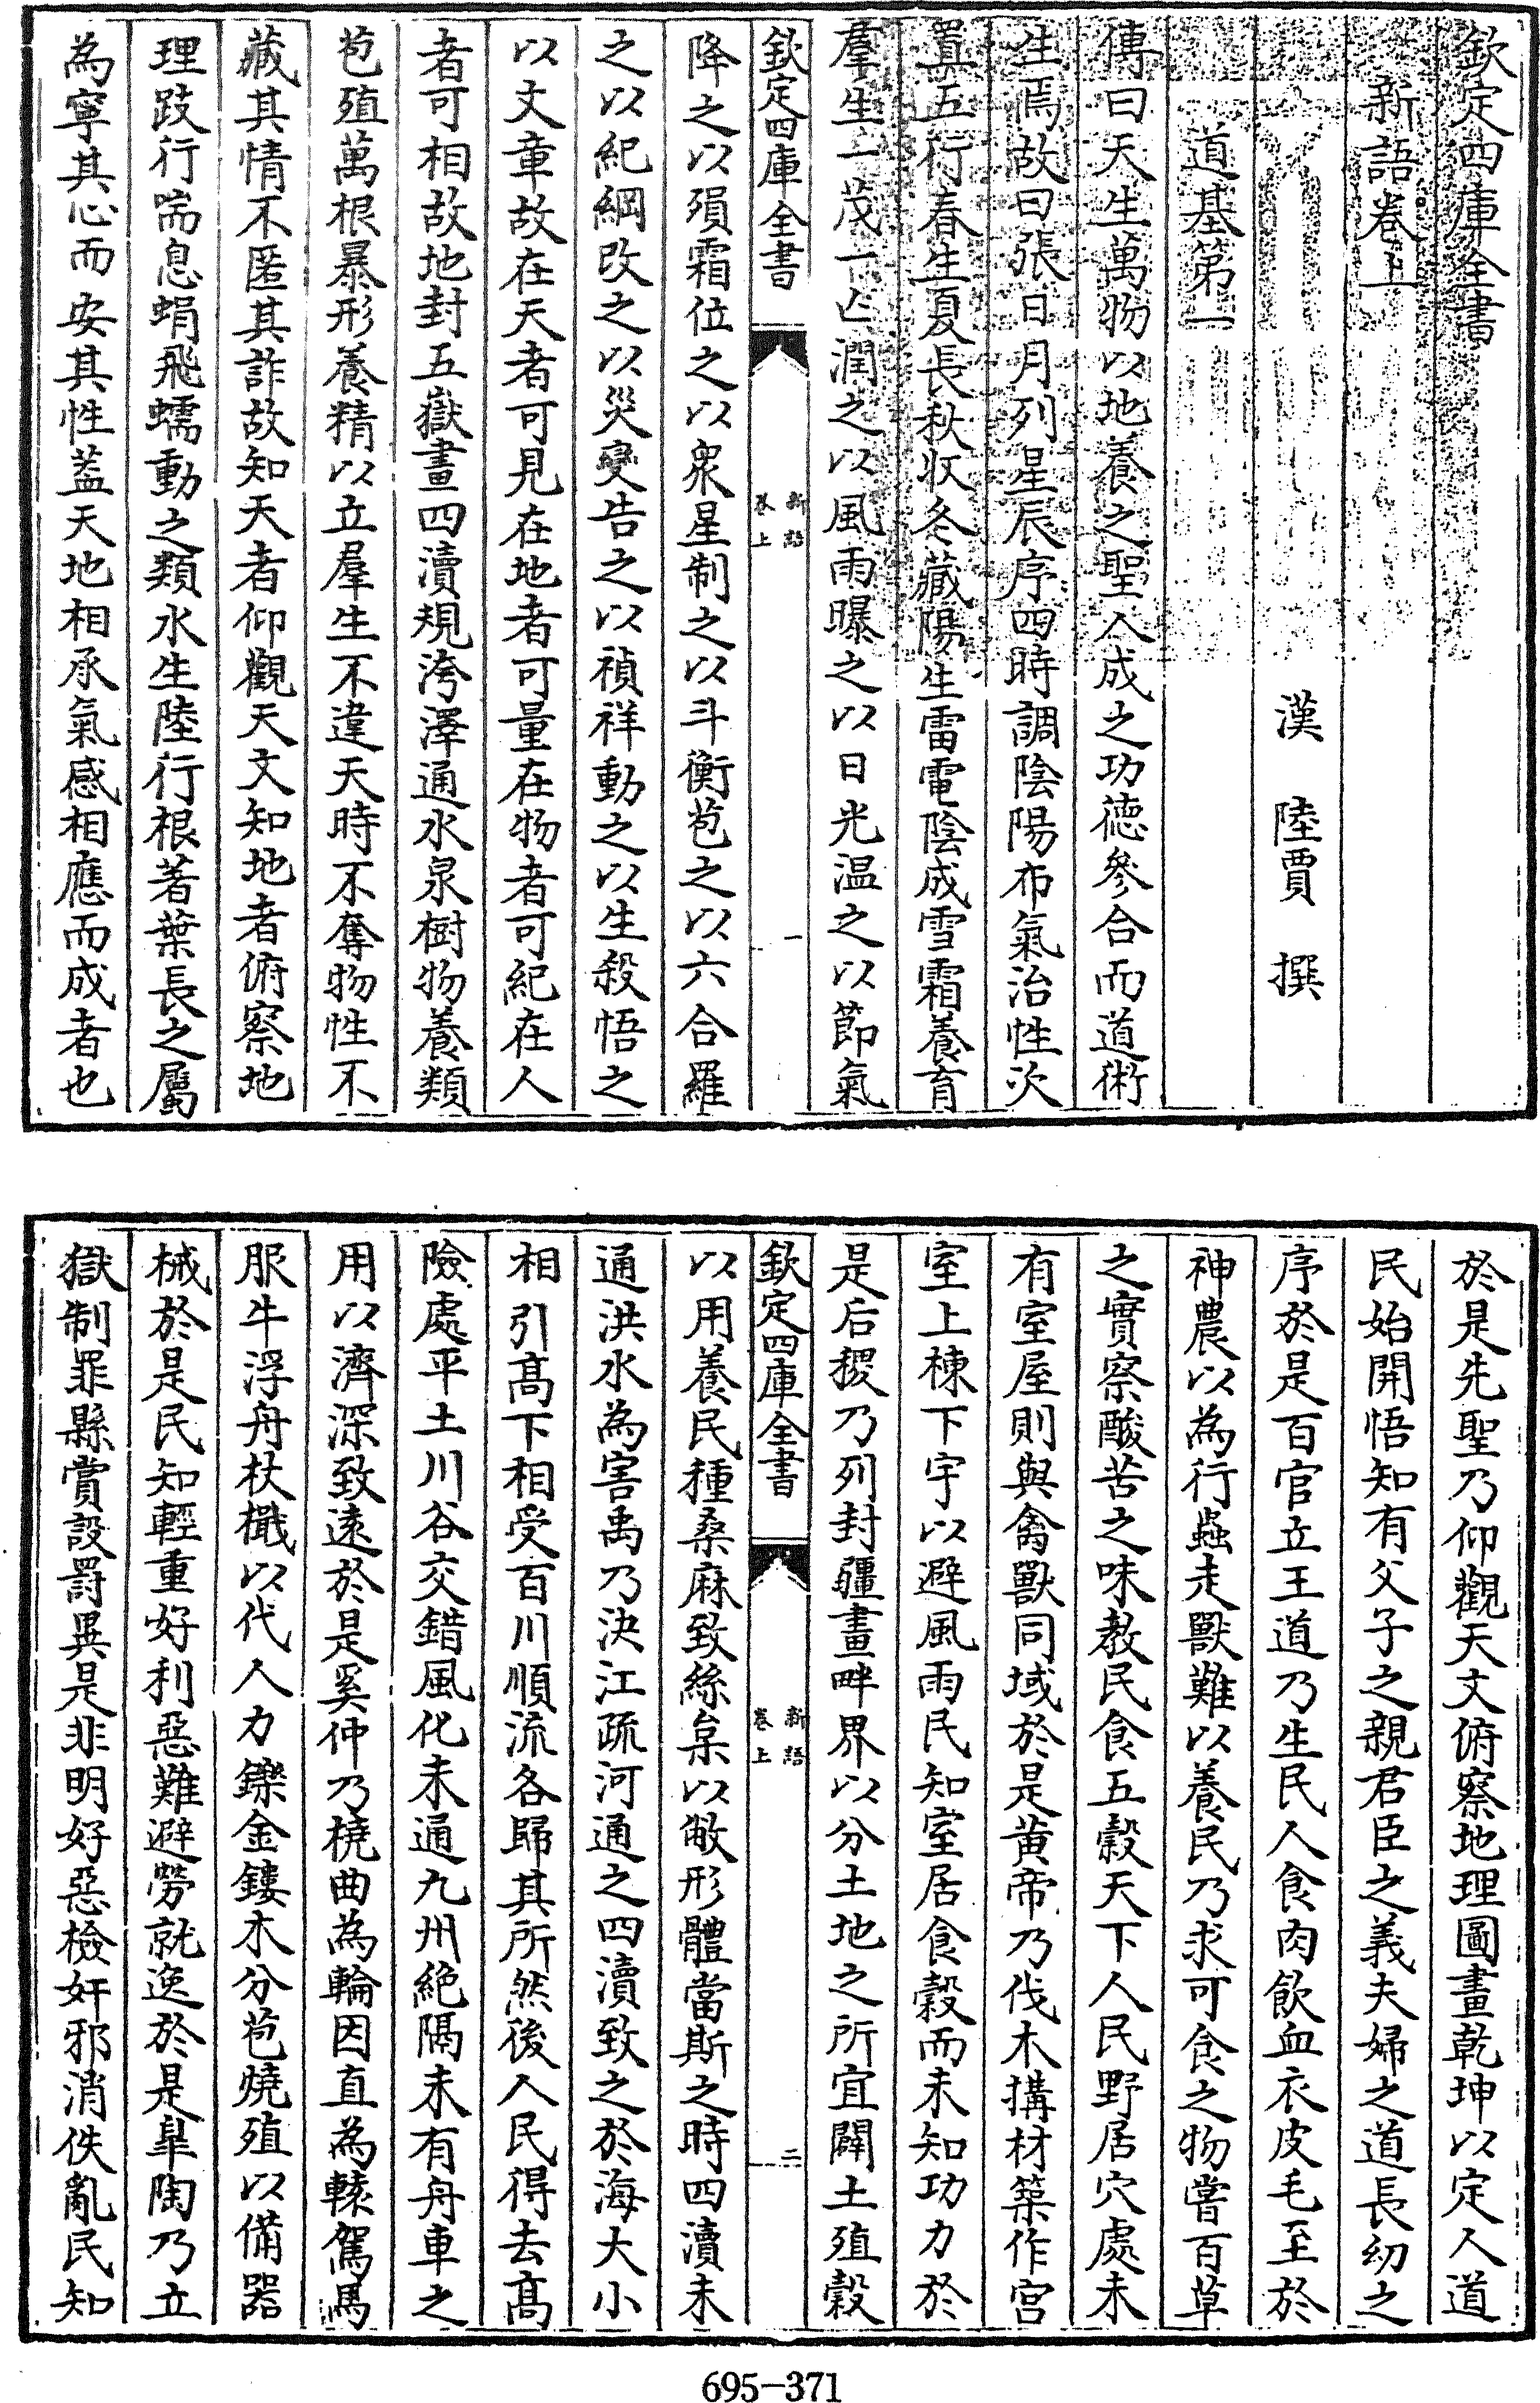 欽定四庫全書
新語卷上
漢 陸賈 撰
道基第一
傳曰天生萬物以地養之聖人成之功德參合而道術
生焉故曰張日月列星辰序四時調陰陽布氣治性次
置五行春生夏長秋收冬藏陽生雷電陰成雪霜養育
羣生一茂一亡潤之以風雨曝之以日光温之以節氣
欽定四庫全書
新語
卷上
一
降之以殞霜位之以衆星制之以斗衡苞之以六合羅
之以紀綱改之以災變告之以禎祥動之以生殺悟之
以文章故在天者可見在地者可量在物者可紀在人
者可相故地封五嶽畫四瀆規洿澤通水泉樹物養類
苞殖萬根暴形養精以立羣生不違天時不奪物性不
藏其情不匿其詐故知天者仰觀天文知地者俯察地
理跂行喘息蜎飛蠕動之類水生陸行根著葉長之屬
為寧其心而安其性葢天地相承氣感相應而成者也
於是先聖乃仰觀天文俯察地理圖畫乾坤以定人道
民始開悟知有父子之親君臣之義夫婦之道長幼之
序於是百官立王道乃生民人食肉飲血衣皮毛至於
神農以為行蟲走獸難以養民乃求可食之物嘗百草
之實察酸苦之味教民食五穀天下人民野居穴處未
有室屋則與禽獸同域於是黄帝乃伐木搆材築作宫
室上棟下宇以避風雨民知室居食穀而未知功力於
是后稷乃列封疆畫畔界以分土地之所宜闢土殖穀
欽定四庫全書
新語
卷上
二
以用養民種桑麻致絲枲以蔽形體當斯之時四瀆未
通洪水為害禹乃決江疏河通之四瀆致之於海大小
相引髙下相受百川順流各歸其所然後人民得去髙
險處平土川谷交錯風化未通九州絶隔未有舟車之
用以濟深致遠於是奚仲乃橈曲為輪因直為轅駕馬
服牛浮舟杖檝以代人力鑠金鏤木分苞燒殖以備器
械於是民知輕重好利惡難避勞就逸於是臯陶乃立
獄制罪縣賞設罸異是非明好惡檢奸邪消佚亂民知
695-371